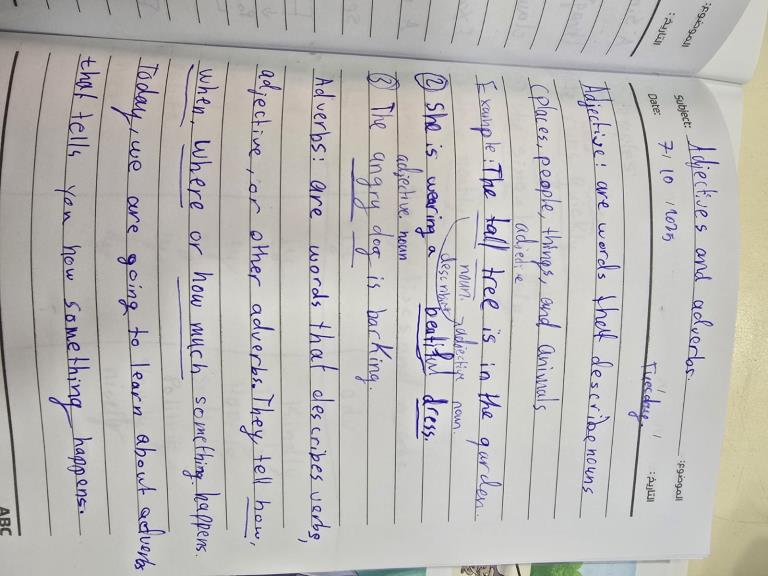 الموضوع:
التاريخ:
Subject: Adjectives and adverbs. الموضوع:
Date: 7/ 10 / 2025 / / التاريخ:
Tuesday.
Adjective: are words that describe nouns
(places, people, things, and animals
adjective
Example: The tall tree is in the garden.
noun. adjective noun.
describe
② She is wearing a beautiful dress.
adjective noun
③ The angry dog is barking.
Adverbs: are words that describes verbs,
adjective, or other adverbs. They tell how,
when, where or how much something happens.
Today, we are going to learn about adverbs
that tells you how something happens.
ABC